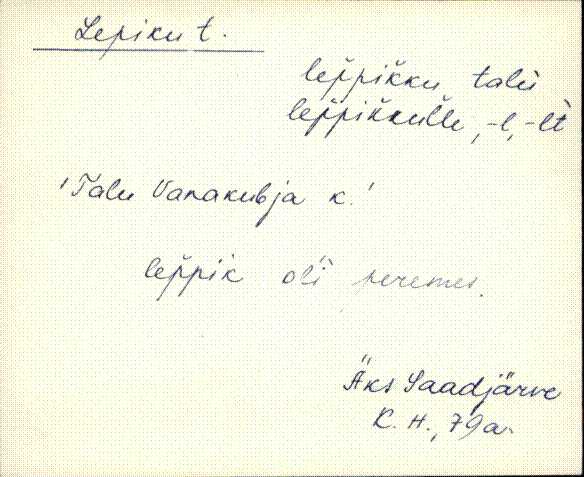 Lepiku t.
lep̌pik̆ku talù
lep̌pik̆kul̆le, -l, -lt
'Talu Vanakubja k.'
lep̌pik oĺi peremes.
Äks Saadjärve
K. H., 79a.